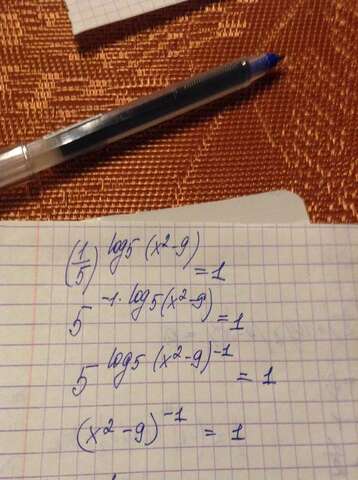 (1/5)^log₅(x²-9) = 1
5^-1·log₅(x²-9) = 1
5^log₅(x²-9)^-1 = 1
(x²-9)^-1 = 1